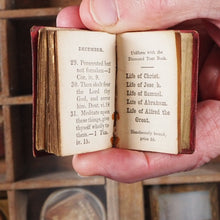 DECEMBER.
29. Persecuted but
not forsaken—2
Cor. iv. 9.
30. Thou shalt fear
the Lord thy
God, and serve
him. Deut. vi. 13
31. Meditate upon
these things,
give thyself
wholly to
them—1 Tim.
iv. 15.
Uniform with the
Diamond Text Book.
Life of Christ.
Life of Joseph.
Life of Samuel.
Life of Abraham.
Life of Alfred the
Great.
Handsomely bound,
price 3d.